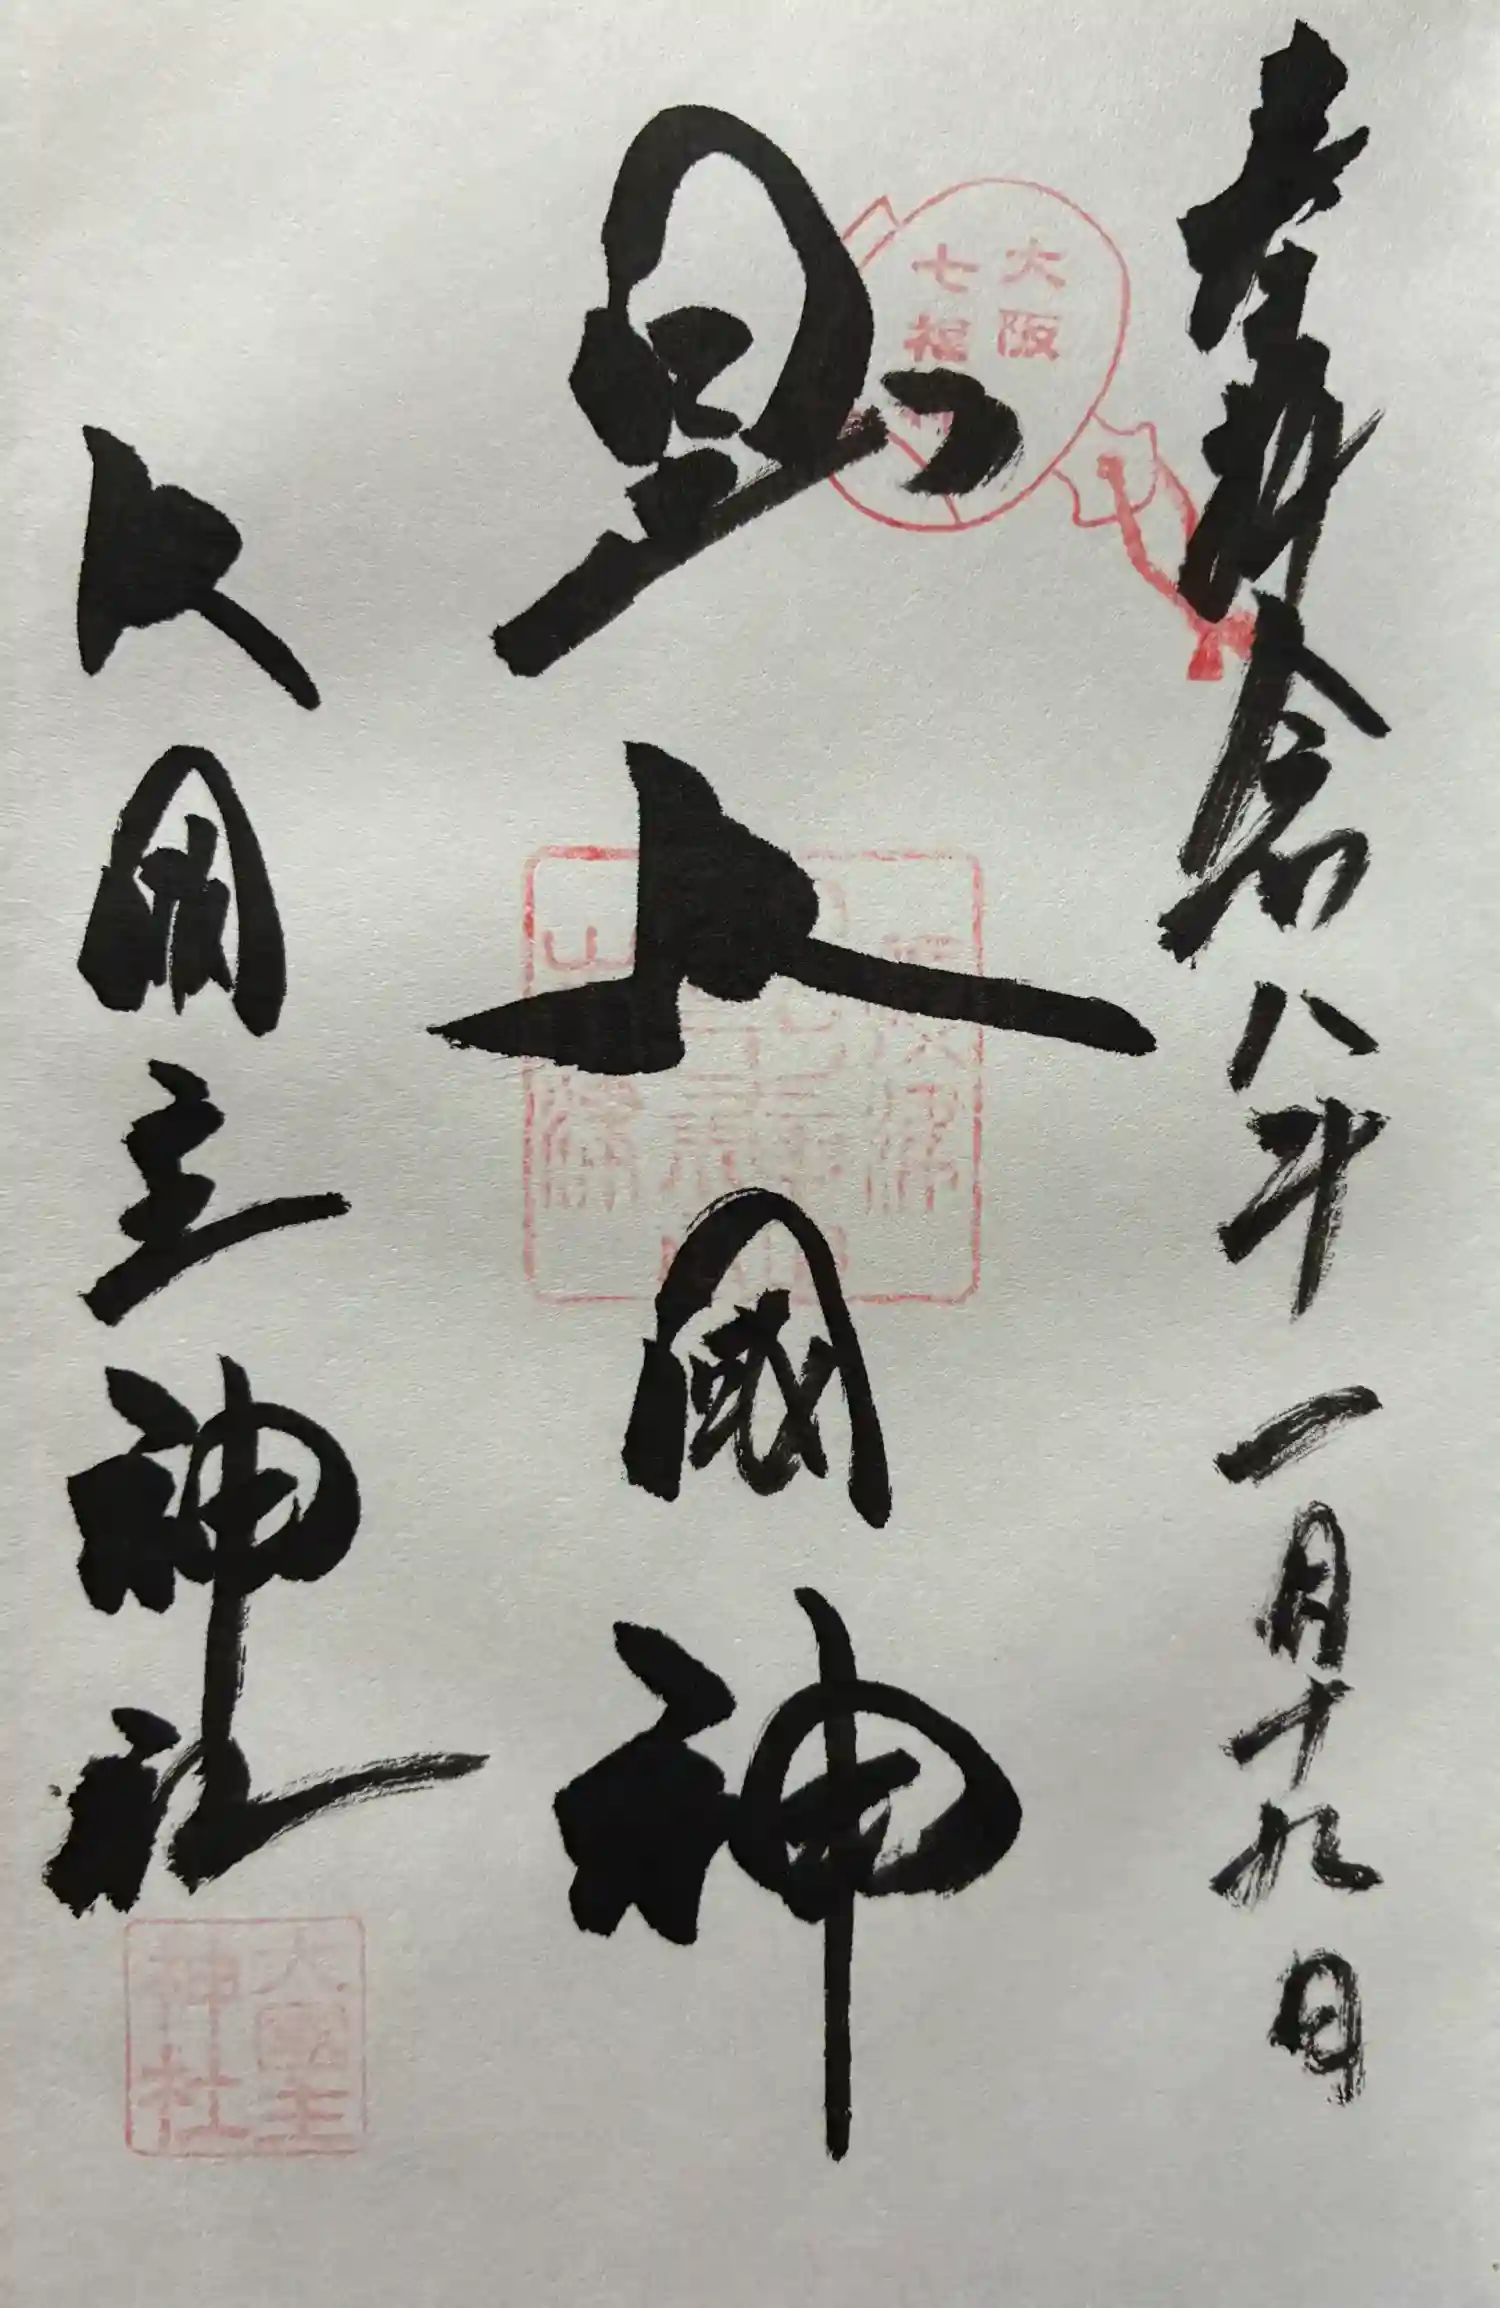 奉拝 令和八年一月十九日
大阪
七福
日出大國神
大国主神社
大國主
神社